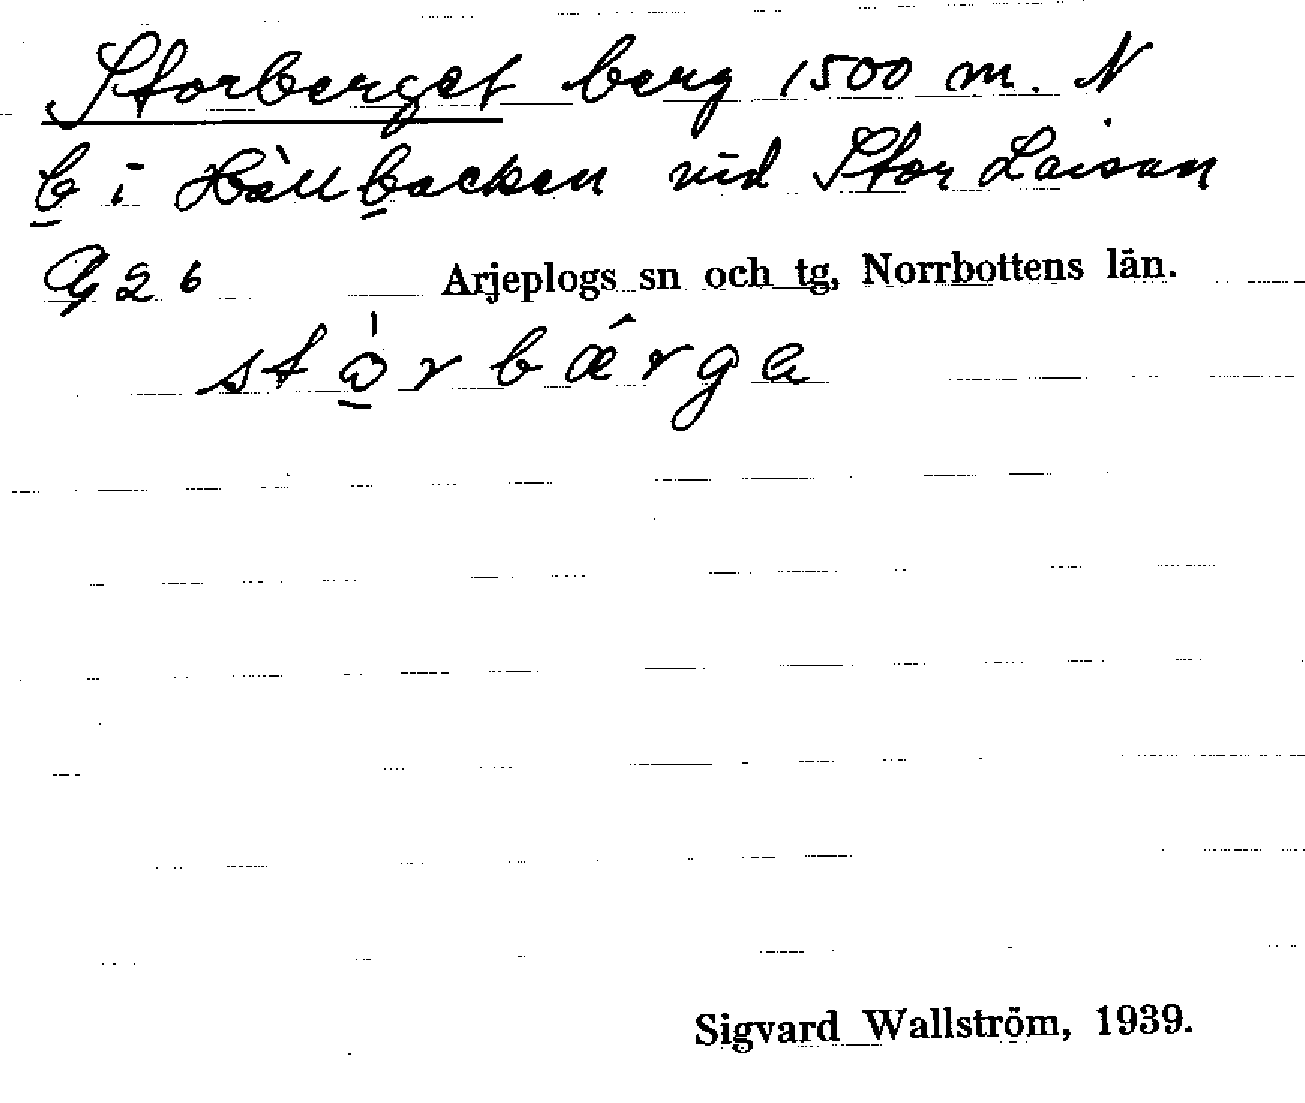 Storberget berg 1500 m. N
b i Hällbacken vid Stor Laisan
G 2 b Arjeplogs sn och tg, Norrbottens län.
Sigvard Wallström, 1939.